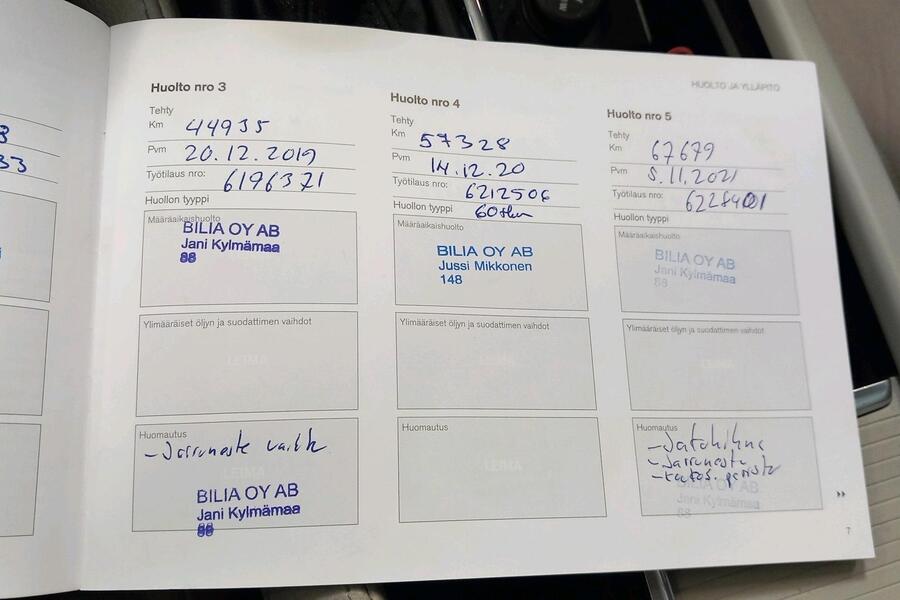 HUOLTO JA YLLÄPITO
33
Huolto nro 3
Tehty
Km 44935
Pvm 20.12.2019
Työtilaus nro: 6196371
Huollon tyyppi
Määräaikaishuolto
BILIA OY AB
Jani Kylmämaa
88
Ylimääräiset öljyn ja suodattimen vaihdot
LEIMA
Huomautus
- Jarruneste vaihto
LEIMA
BILIA OY AB
Jani Kylmämaa
88
Huolto nro 4
Tehty
Km 57328
Pvm 14.12.20
Työtilaus nro: 6212506
Huollon tyyppi 60tkm
Määräaikaishuolto
BILIA OY AB
Jussi Mikkonen
148
Ylimääräiset öljyn ja suodattimen vaihdot
LEIMA
Huomautus
LEIMA
Huolto nro 5
Tehty
Km 67679
Pvm 5.11.2021
Työtilaus nro: 6228401
Huollon tyyppi
Määräaikaishuolto
BILIA OY AB
Jani Kylmämaa
88
Ylimääräiset öljyn ja suodattimen vaihdot
LEIMA
Huomautus
- Jakohihna
- Jarruneste
BILIA OY AB
Jani Kylmämaa
88
7